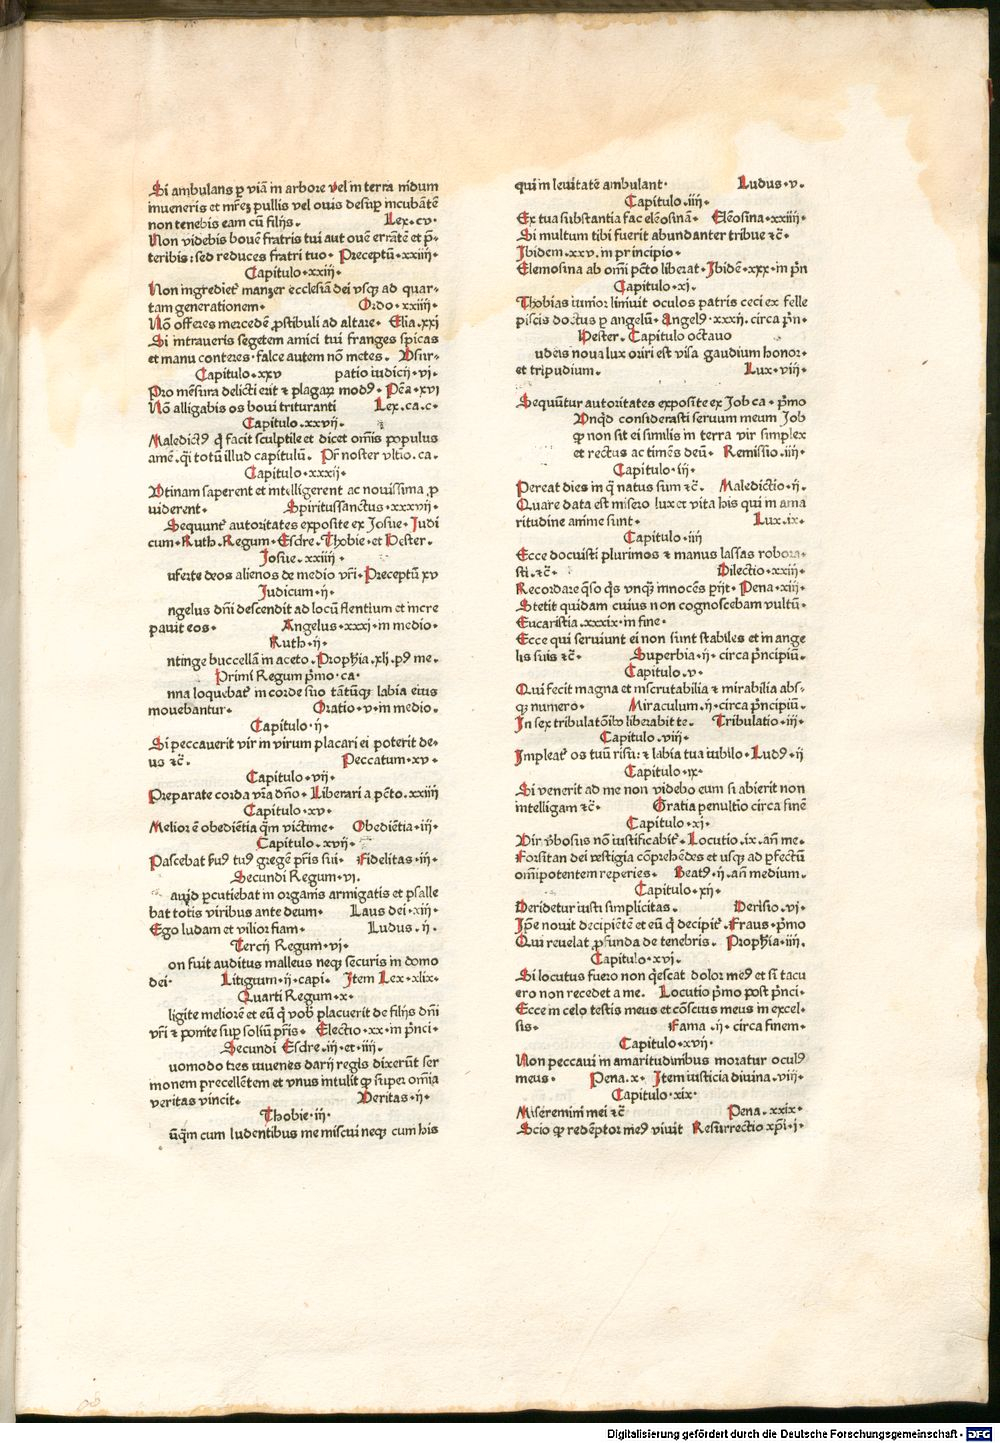 Si ambulans ꝑ viā in arbore vel in terra nidum
inueneris et mr̄eꝫ pullis vel ouis desuꝑ incubātē
non tenebis eam cū filijs. Lex·cv·
Non videbis bouē fratris tui aut ouē errātē et p̄-
teribis: sed reduces fratri tuo· Preceptū·xxiiij·
Capitulo·xxiij·
Non ingrediet᷑ manzer ecclesiā dei vsqꝫ ad quar-
tam generationem· Ordo·xxiiij·
Nō offeres mercedē ꝓstibuli ad altare· Elia.xxj
Si intraueris segetem amici tui franges spicas
et manu conteres·falce autem nō metes. Vsur-
Capitulo·xxv patio iudicij·vj·
Pro mēsura delicti erit ⁊ plagaꝝ modꝰ· Pēa·xvj
Nō alligabis os boui trituranti Lex.ca.c·
Capitulo·xxvij·
Maledictꝰ q̄ facit sculptile et dicet om̄is populus
amē.q̄i totū illud capitulū. Pr̄ noster vltio.ca.
Capitulo·xxxij·
Vtinam saperent et intelligerent ac nouissima ꝓ
uiderent· Spiritussanctus·xxxvij·
Sequunt᷑ autoritates exposite ex Josue·Judi
cum·Ruth.Regum·Esdre.Thobie·et Hester.
Josue.xxiiij·
uferte deos alienos de medio vr̄i·Preceptū xv
Judicum·ij·
ngelus dn̄i descendit ad locū flentium et incre
pauit eos· Angelus·xxxj·in medio·
Ruth·ij·
ntinge buccellā in aceto.Proph̄ia.xlj.pꝰ me.
Primi Regum p̄mo·ca·
nna loquebat᷑ in corde suo tātūqꝫ labia eius
mouebantur· Oratio·v·in medio.
Capitulo·ij·
Si peccauerit vir in virum placari ei poterit de-
us ⁊c̄. Peccatum·xv·
Capitulo·vij·
Preparate corda vr̄a dn̄o· Liberari a pcto.xxiiij
Capitulo·xv·
Melior ē obediētia q̄m victime· Obediētia·iij·
Capitulo·xvij·
Pascebat ẜuꝰ tuꝰ gregē pr̄is sui· Fidelitas·iij·
Secundi Regum·vj.
auid ꝑcutiebat in organis armigatis et psalle
bat totis viribus ante deum· Laus dei·xiij·
Ego ludam et vilior fiam· Ludus.ij.
Tercij Regum·vj·
on fuit auditus malleus neqꝫ securis in domo
dei· Litigium·ij·capi· Item Lex·xlix·
Quarti Regum·x·
ligite meliorē et eū q̄ vob̄ placuerit de filijs dn̄i
vr̄i ⁊ ponite suꝑ soliū pr̄is· Electio·xx·in p̄nci·
Secundi Esdre.iij·et·iiij.
uomodo tres iuuenes darij regis dixerūt ser
monem precellētem et vnus intulit ꝙ super om̄ia
veritas vincit. Veritas·ij·
Thobie·iij·
ūq̄m cum ludentibus me miscui neqꝫ cum his
qui in leuitatē ambulant· Ludus·v.
Capitulo.iiij·
Ex tua substantia fac elēosinā· Elēosina·xxiiij·
Si multum tibi fuerit abundanter tribue ⁊c̄·
Ibidem.xxv.in principio·
Elemosina ab om̄i pcto liberat·Ibidē·xxx·in p̄n
Capitulo·xj.
Thobias iunior liniuit oculos patris ceci ex felle
piscis doctus ꝑ angelū· Angelꝰ·xxxij.circa p̄n·
Hester. Capitulo octauo
udeis noua lux oriri est visa gaudium honor·
et tripudium. Lux·viij·
Sequūtur autoritates exposite ex Job ca· p̄mo
Vnqd considerasti seruum meum Job
ꝙ non sit ei similis in terra vir simplex
et rectus ac timēs deū· Remissio.iij·
Capitulo·iij·
Pereat dies in q̄ natus sum ⁊c̄. Maledictio·ij.
Quare data est misero lux et vita his qui in ama
ritudine anime sunt· Lux.ix·
Capitulo·iiij
Ecce docuisti plurimos ⁊ manus lassas robora·
sti.⁊c̄· Dilectio·xxiij·
Recordare q̄so q̄s vnqꝫ innocēs ꝑijt· Pena·xij·
Stetit quidam cuius non cognoscebam vultū·
Eucaristia.xxxix·in fine·
Ecce qui seruiunt ei non sunt stabiles et in ange
lis suis ⁊c̄· Superbia·ij·circa p̄ncipiū.
Capitulo.v·
Qui fecit magna et inscrutabilia ⁊ mirabilia abs-
qꝫ numero· Miraculum.ij·circa p̄ncipiū.
In sex tribulatōibꝰ liberabit te. Tribulatio·iij·
Capitulo·viij·
Impleat᷑ os tuū risu: ⁊ labia tua iubilo·Ludꝰ·ij
Capitulo·ix·
Si venerit ad me non videbo eum si abierit non
intelligam ⁊c̄· Gratia penultio circa finē
Capitulo·xj·
Vir v̄bosus nō iustificabit᷑· Locutio.ix.an̄ me·
Forsitan dei vestigia cōprehēdes et usqꝫ ad ꝑfectū
om̄ipotentem reperies. Beatꝰ·ij·an̄ medium.
Capitulo·xij·
Deridetur iusti simplicitas. Derisio.vj·
Ip̄e nouit decipiētē et eū q̄ decipit᷑.Fraus·p̄mo
Qui reuelat ꝓfunda de tenebris. Proph̄ia·iiij.
Capitulo·xvj.
Si locutus fuero non q̄escat dolor meꝰ et si tacu
ero non recedet a me. Locutio p̄mo post p̄nci·
Ecce in celo testis meus et cōscius meus in excel-
sis· Fama·ij·circa finem·
Capitulo·xvij·
Non peccaui in amaritudinibus moratur oculꝰ
meus· Pena.x· Item iusticia diuina.viij·
Capitulo·xix·
Miseremini mei ⁊c̄ Pena·xxix·
Scio ꝙ redēptor meꝰ viuit Resurrectio xp̄i·j·
Digitalisierung gefördert durch die Deutsche Forschungsgemeinschaft - DFG